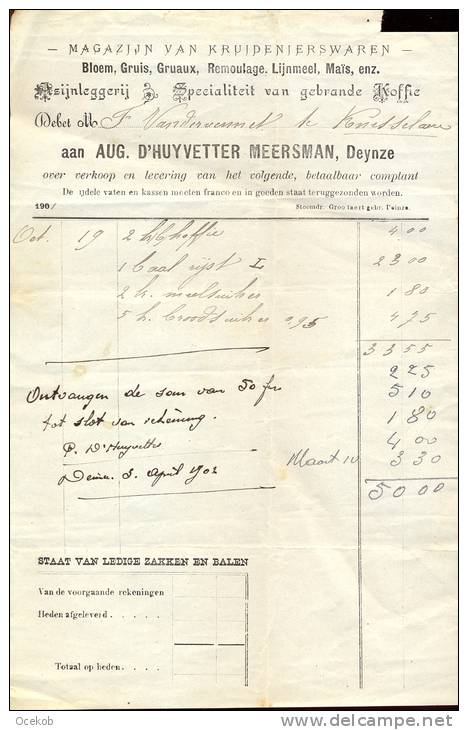 — MAGAZIJN VAN KRUIDENIERSWAREN —
Bloem, Gruis, Gruaux, Remoulage, Lijnmeel, Maïs, enz.
Azijnleggerij & Specialiteit van gebrande Koffie
Debet M. F Vandervennet te Knesselare
aan AUG. D'HUYVETTER MEERSMAN, Deynze
over verkoop en levering van het volgende, betaalbaar comptant
De ijdele vaten en kassen moeten franco en in goeden staat teruggezonden worden.
1901 Stoomdr. Grootaert gebr. Deinze.
Oct. 19 2 k koffie 4 00
1 Baal rijst 23 00
2 k. meelsuiker 1 80
5 k. Broodsuiker 0,95 4 75
33 55
2 25
Ontvangen de som van 50 frs 5 10
tot slot van rekening. 1 80
P. D'Huyvetter 4 00
Maart 10 3 30
Deinze 3. April 1902
50 00
STAAT VAN LEDIGE ZAKKEN EN BALEN
Van de voorgaande rekeningen
Heden afgeleverd . . . . .
Totaal op heden . . . . .
Ocekob
www.delcampe.net